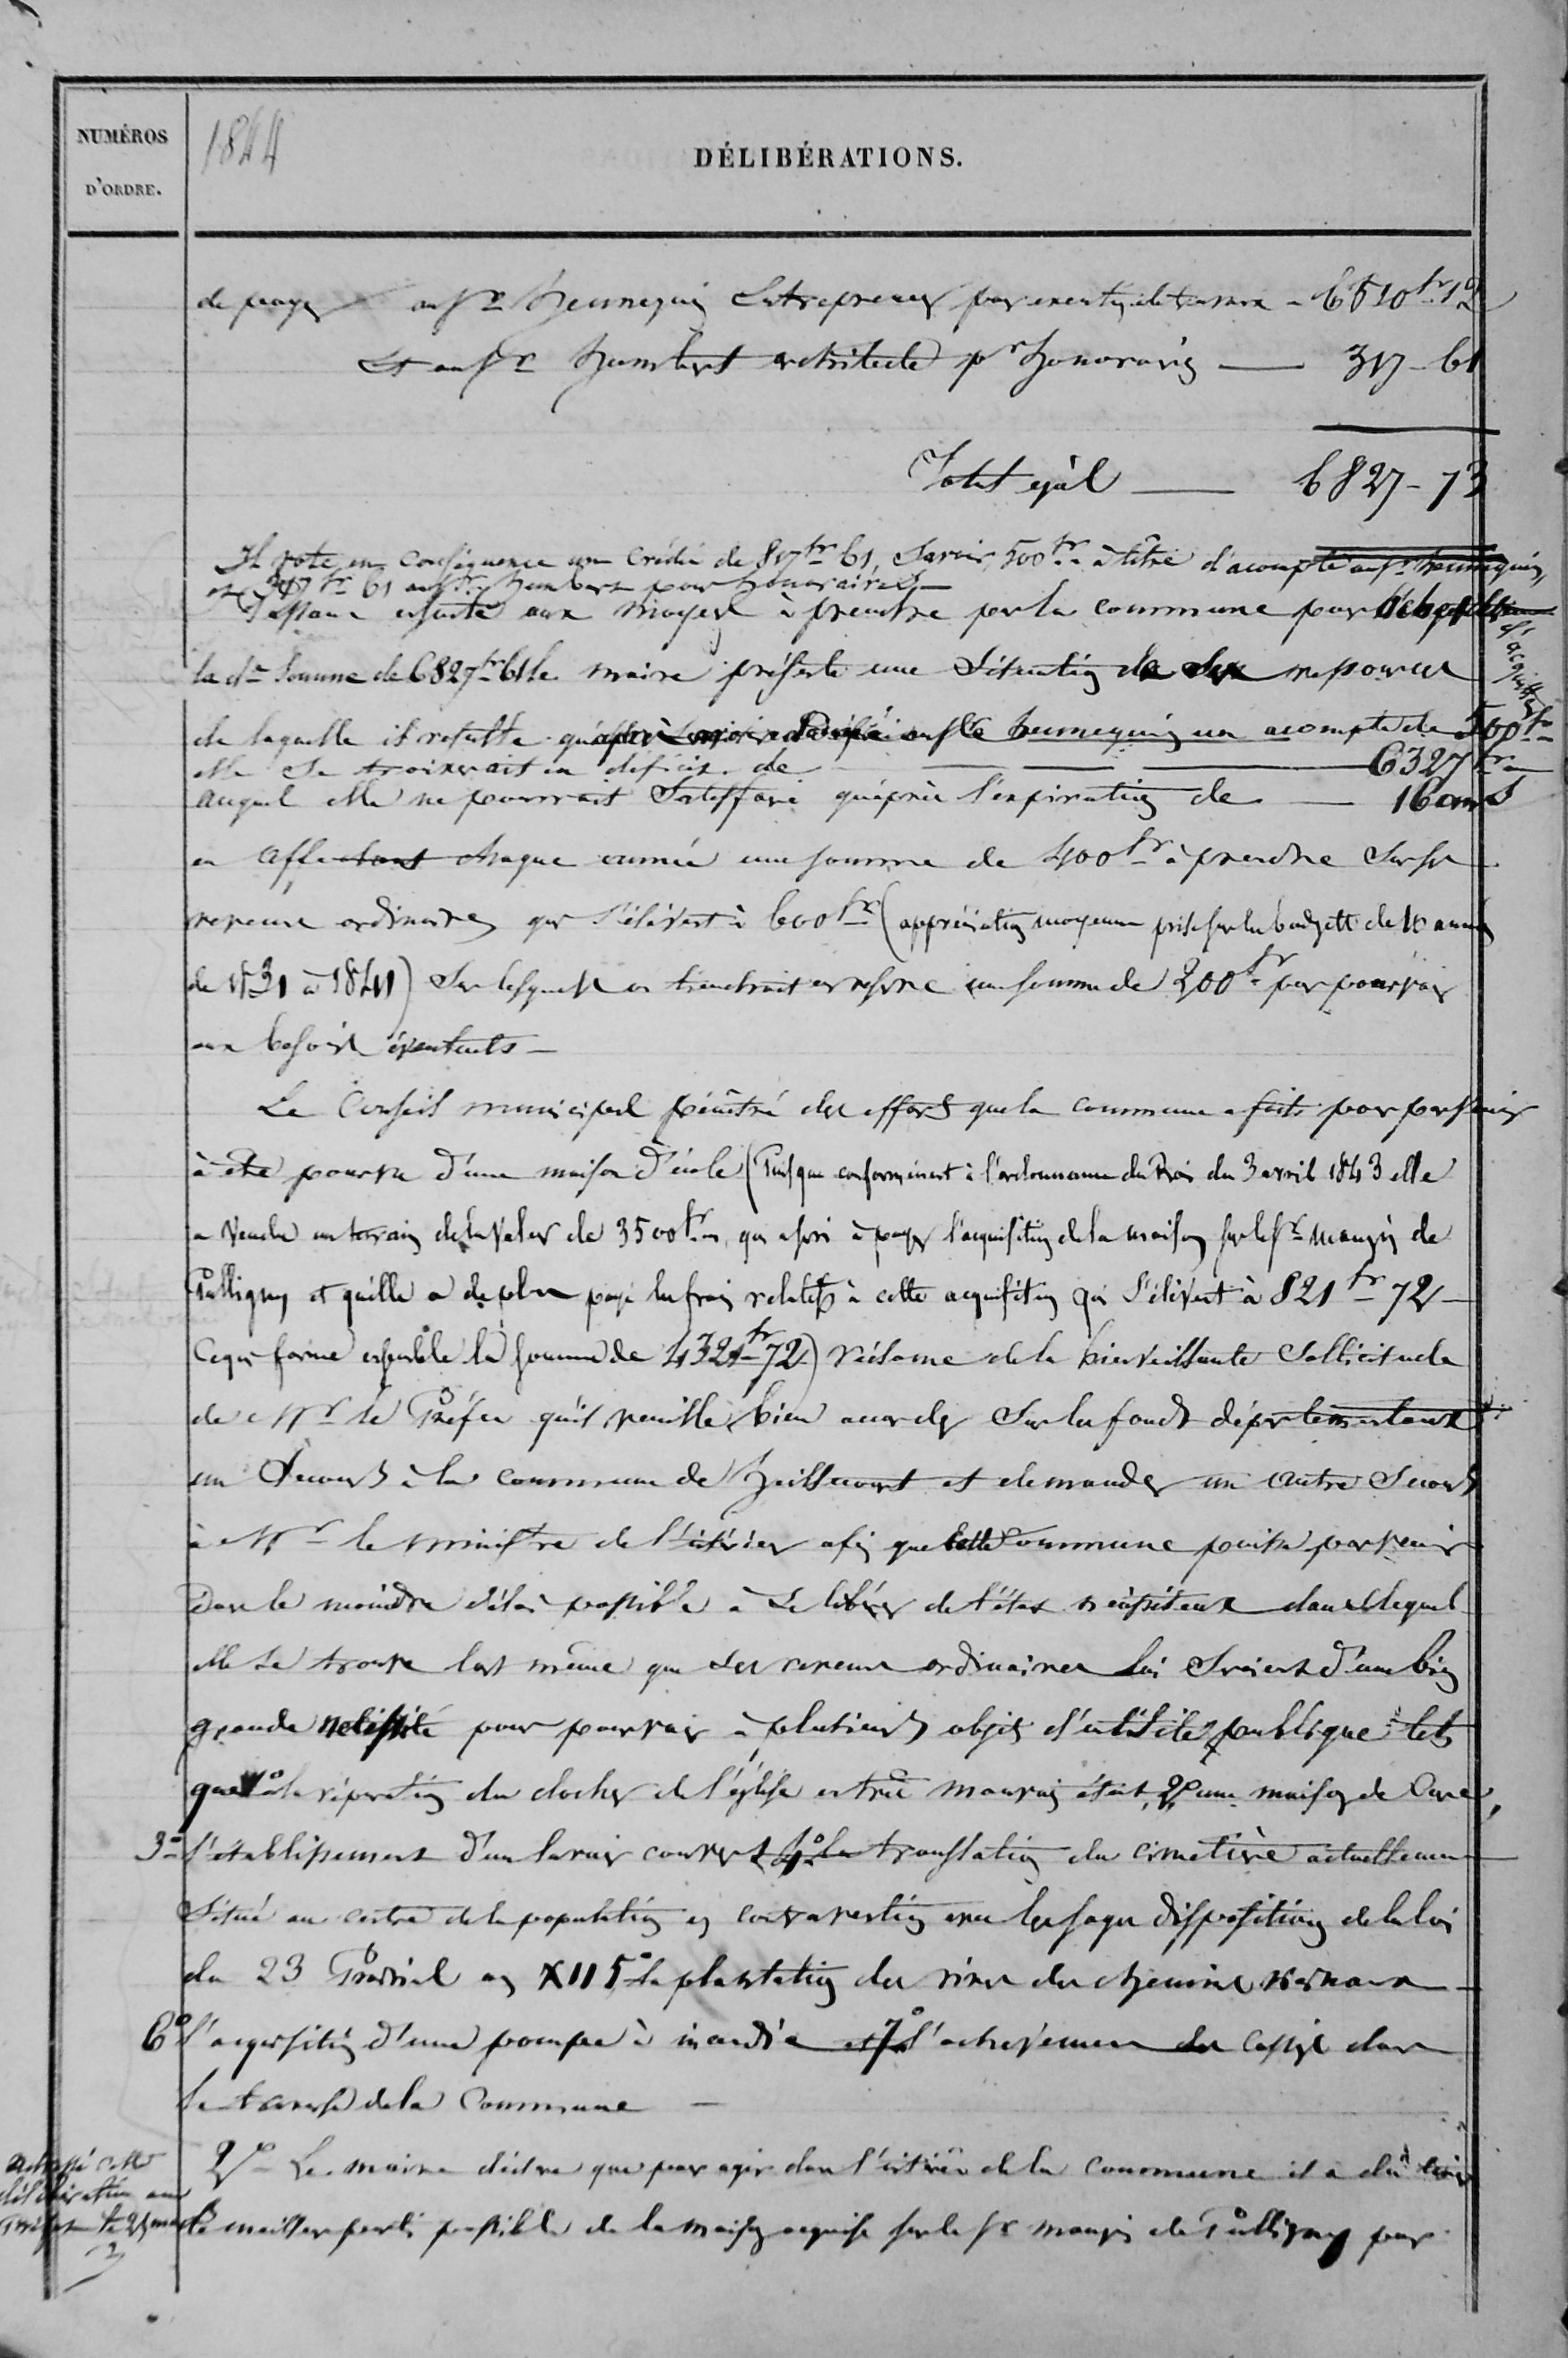 NUMÉROS
D'ORDRE.
1844
DÉLIBÉRATIONS.
de payer au Sr hennequin Entrepreneur pour exécution de travaux - 6510fr. 12
Et au Sr humbert architecte pr honoraires — 317 - 61
Total égal — 6827 - 73
Il vote en conséquence un crédit de 817fr 61, Savoir, 500fr à titre d'acompte au Sr hennequin,
et 317fr 61 au Sr humbert pour honoraires —
Passant ensuite aux moyens à prendre par la commune pour
d'acquitter
la de Somme de 6827fr 61 le maire présente une Situation de Ses ressources
de laquelle il résulte qu'après avoir au Sr hennequin un acompte de 500fr
elle Se trouverait en déficit de — 6327fr
auquel elle ne pourrait Satisfaire qu'après l'expiration de — 16 ans
en affectant chaque année une somme de 400fr à prendre Sur ses
revenus ordinaires qui S'élèvent à 600fr (appréciation moyenne prise sur les budgets de 10 années
de 1831 à 1841) Sur lesquels on tiendrait en réserve une somme de 200fr pour pourvoir
aux besoins éventuels —
Le Conseil municipal pénétré des efforts que la commune a faits pour parvenir
à être pourvue d'une maison d'école (Puisque conformément à l'ordonnance du Roi du 3 avril 1843 elle
a vendu un terrain de la valeur de 3500fr qui a servi à payer l'acquisition de la maison sur le Sr mangin de
Pulligny et qu'elle a de plus payé les frais relatifs à cette acquisition qui S'élèvent à 821fr 72 —
Ce qui forme ensemble la somme de 4321fr 72) réclame de la bienveillante Sollicitude
de Mr le Préfet qu'il veuille bien accorder Sur les fonds départementaux
un Secours à la commune de et demander un autre Secours
à Mr le ministre de l'intérieur afin que cette Commune puisse parvenir
Dans le moindre délai possible à Se libérer de l'état nécessiteux dans lequel
elle Se trouve lors même que Ses revenus ordinaires lui Seraient d'une bien
grande nécessité pour pourvoir à plusieurs objets d'utilité publique tels
que 1o la réparation du clocher de l'église en très mauvais état, 2o une maison de Cure,
3o l'établissement d'un lavoir couvert 4o la translation du cimetière actuellement
Situé au centre de la population en contravention avec les sages dispositions de la loi
du 23 Prairial an XII 5o la plantation des rives des chemins vicinaux —
6o l'acquisition d'une pompe à incendie et 7o l'achèvement des cassis dans
la traverse de la Commune —
2o Le maire déclare que pour agir dans l'intérêt de la Commune il a dû tirer
le meilleur parti possible de la maison acquise sur le Sr mangin de Pulligny pour
adressé cette
délibération au
Préfet le 25 mars